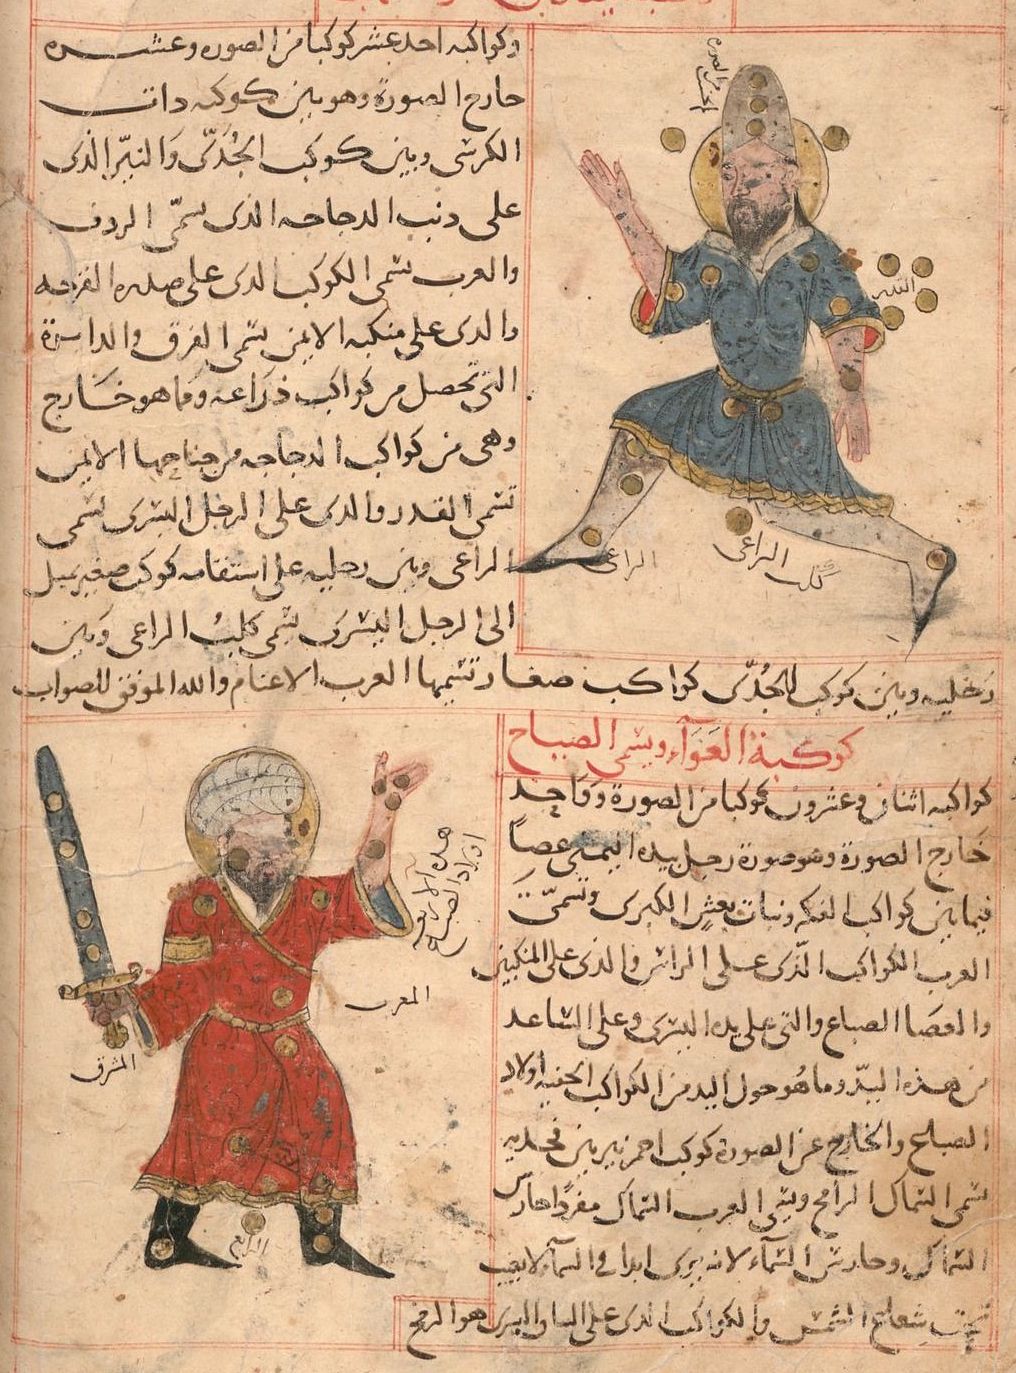 وكواكبه احد عشر كوكبا من الصورة وعشره
خارج الصورة وهو بين كوكبه ذات
الكرسي وبين كوكب الجُدَيّ والنيّر الذى
على ذنب الدجاجه الذى سمّى الردف
والعرب تسمى الكوكب الذى على صدره القرحه
والذى على منكبه الايمن يسمى الفرق والدايرة
التى تحصل من كواكب ذراعه وما هو خارج
وهى من كواكب الدجاجه من جناحها الايمن
تسمى القدر والذى على الرجل اليسرى تسمى
الراعى وبين رجليه على استقامه كوكب صغير يميل
الى الرجل اليسرى يسمى كلبُ الراعى وبين
رجليه وبين كوكب الجُدَيّ كواكب صغار تسميها العرب الاغنام والله الموفق للصواب
الراعى
كلب الراعى
كوكبة العَوّآء ويسمى الصياح
كواكبه اثنان وعشرون كوكبا من الصورة وواحد
خارج الصورة وهو صورة رجل بيده اليمنى عصاً
فيما بين كواكب الفكه وبنات نعش الكبرى وتسمّى
العرب الكواكب الّذى على الراس والذى على المنكبين
والعصا الضباع والتى على يده اليسرى وعلى الساعد
من هذه اليدّ وما هُو حول اليد من الكواكب الخفيه اولاد
الضباع والخارج عن الصورة كوكب احمر نير بين فخديه
يسمى السماك الرامح ويسمى العرب السماك مفردًا حارس
السماك وحارس السمآء لانه يرى ابدا فى السمآء لا يغيب
تحت شعاع الشمس والكواكب الذى على الساق اليسرى هو الرمح
هذه الاربعة
اولاد الضباع
المغرب
المشرق